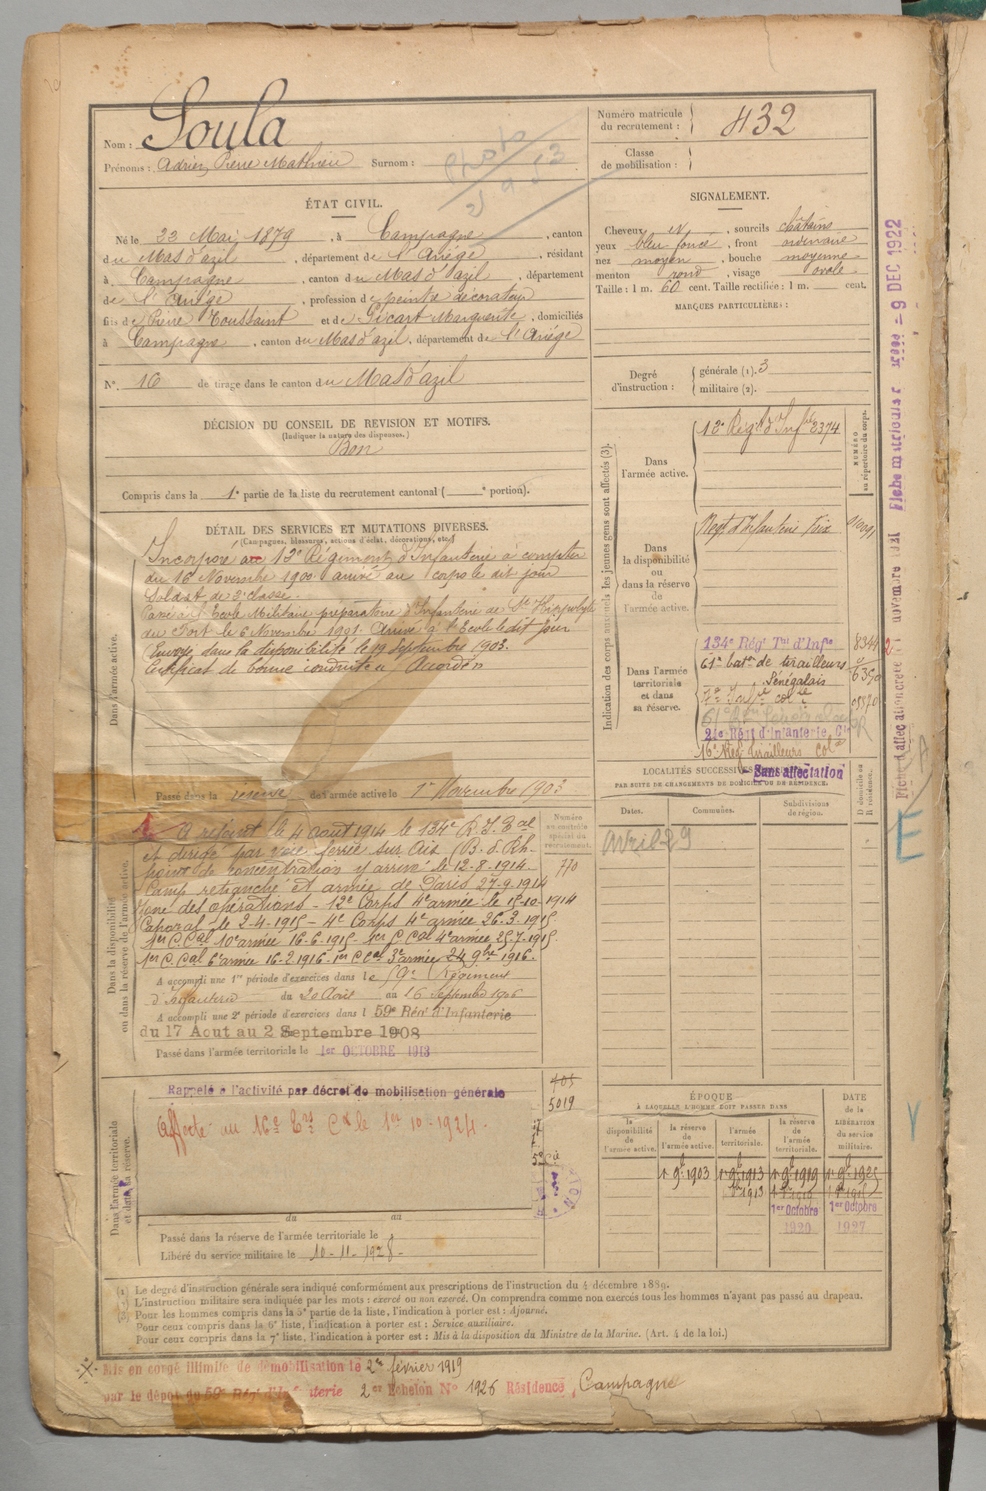 Nom : Soula
Prénoms : Adrien Pierre Mathieu Surnom :
Photo
ÉTAT CIVIL.
Né le 23 Mai 1879, à Campagne, canton
du Mas d'azil, département de l'Ariège, résidant
à Campagne, canton du Mas d'azil, département
de l'Ariège, profession de peintre décorateur
fils de Pierre Toussaint et de Sicart Marguerite, domiciliés
à Campagne, canton du Mas d'azil, département de l'Ariège
N°. 16 de tirage dans le canton du Mas d'azil
DÉCISION DU CONSEIL DE REVISION ET MOTIFS.
(Indiquer la nature des dispenses.)
Bon
Compris dans la 1e partie de la liste du recrutement cantonal ( e portion).
DÉTAIL DES SERVICES ET MUTATIONS DIVERSES.
(Campagnes, blessures, actions d'éclat, décorations, etc.)
Dans l'armée active.
Incorporé au 12e Régiment d'Infanterie à compter
du 16 Novembre 1900 arrivé au corps le dit jour
Soldat de 2e classe.
Passé à l'Ecole Militaire préparatoire d'Infanterie de St Hippolyte
du Fort le 6 Novembre 1901. Arrivé à l'Ecole le dit jour
Envoyé dans la disponibilité le 19 Septembre 1903.
Certificat de bonne conduite "Accordé"
Passé dans la réserve de l'armée active le 1er Novembre 1903
Dans la disponibilité
ou dans la réserve de l'armée active.
A rejoint le 4 aout 1914 le 134e R.I. Tal
et dirigé par voie ferrée sur Ris (B. d. Rh.
point de concentration y arrivé le 12-8-1914.
Camp retranché et armée de Paris 27-9-1914
Zone des opérations - 12e Corps 4e armée le 15-10-1914
Caporal le 2-4-1915 - 4e Corps 4e armée 26-3-1915
1er C. Cal 10e armée 16-6-1915 - 1er C. Cal 4e armée 25-7-1915
1er C. Cal 6e armée 16-2-1916 - 1er C. Cal 3e armée 24 9bre 1916.
A accompli une 1re période d'exercices dans le 59e Régiment
d'Infanterie du 20 Août au 16 Septembre 1906
A accompli une 2e période d'exercices dans l 59e Rég. d'Infanterie
du 17 Aout au 2 Septembre 1908
Passé dans l'armée territoriale le 1er OCTOBRE 1913
Numéro
au contrôle
spécial du
recrutement.
770
Dans l'armée territoriale
et dans sa réserve.
Rappelé à l'activité par décret de mobilisation générale
405
5019
Affecté au 16e Trs Cx le 1er 10-1924.
du au
Passé dans la réserve de l'armée territoriale le
Libéré du service militaire le 10-11-1928.
Numéro matricule
du recrutement : 432
Classe
de mobilisation :
SIGNALEMENT.
Cheveux , sourcils châtains
yeux bleu foncé, front ordinaire
nez moyen, bouche moyenne
menton rond, visage ovale.
Taille : 1 m. 60 cent. Taille rectifiée : 1 m. cent.
MARQUES PARTICULIÈRES :
Degré
d'instruction :
générale (1). 3
militaire (2).
Indication des corps auxquels les jeunes gens sont affectés (3).
NUMÉRO
au répertoire du corps.
Dans
l'armée active.
12e Régt d'Infie 2374
Dans
la disponibilité
ou
dans la réserve
de
l'armée active.
Régt d'Infanterie Foix
Dans l'armée
territoriale
et dans
sa réserve.
134e Régt Tal d'Infie 8344
61e batn de tirailleurs
Sénégalais
21e Régt d'Infanterie Cle
16e Rég tirailleurs Colx
Sans affectation
LOCALITÉS SUCCESSIVES
PAR SUITE DE CHANGEMENTS DE DOMICILE OU DE RÉSIDENCE.
Dates. Communes. Subdivisions
de région. D domicile ou
R résidence.
Avril 29
ÉPOQUE
À LAQUELLE L'HOMME DOIT PASSER DANS
la
disponibilité
de
l'armée active.
la réserve
de
l'armée active.
l'armée
territoriale.
la réserve
de
l'armée
territoriale.
DATE
de la
LIBÉRATION
du service
militaire.
1er 9bre 1903 1er 9bre 1913 1er 9bre 1919 1er 9bre 1925
1er Octobre 1er Octobre
1920 1927
(1) Le degré d'instruction générale sera indiqué conformément aux prescriptions de l'instruction du 4 décembre 1889.
L'instruction militaire sera indiquée par les mots : exercé ou non exercé. On comprendra comme non exercés tous les hommes n'ayant pas passé au drapeau.
(3) Pour les hommes compris dans la 5e partie de la liste, l'indication à porter est : Ajourné.
Pour ceux compris dans la 6e liste, l'indication à porter est : Service auxiliaire.
Pour ceux compris dans la 7e liste, l'indication à porter est : Mis à la disposition du Ministre de la Marine. (Art. 4 de la loi.)
Mis en congé illimité de démobilisation le 2 février 1919
par le dépôt du 59e Régt d'Infanterie 2er Echelon N° 1926 Résidence, Campagne
9 DEC 1922